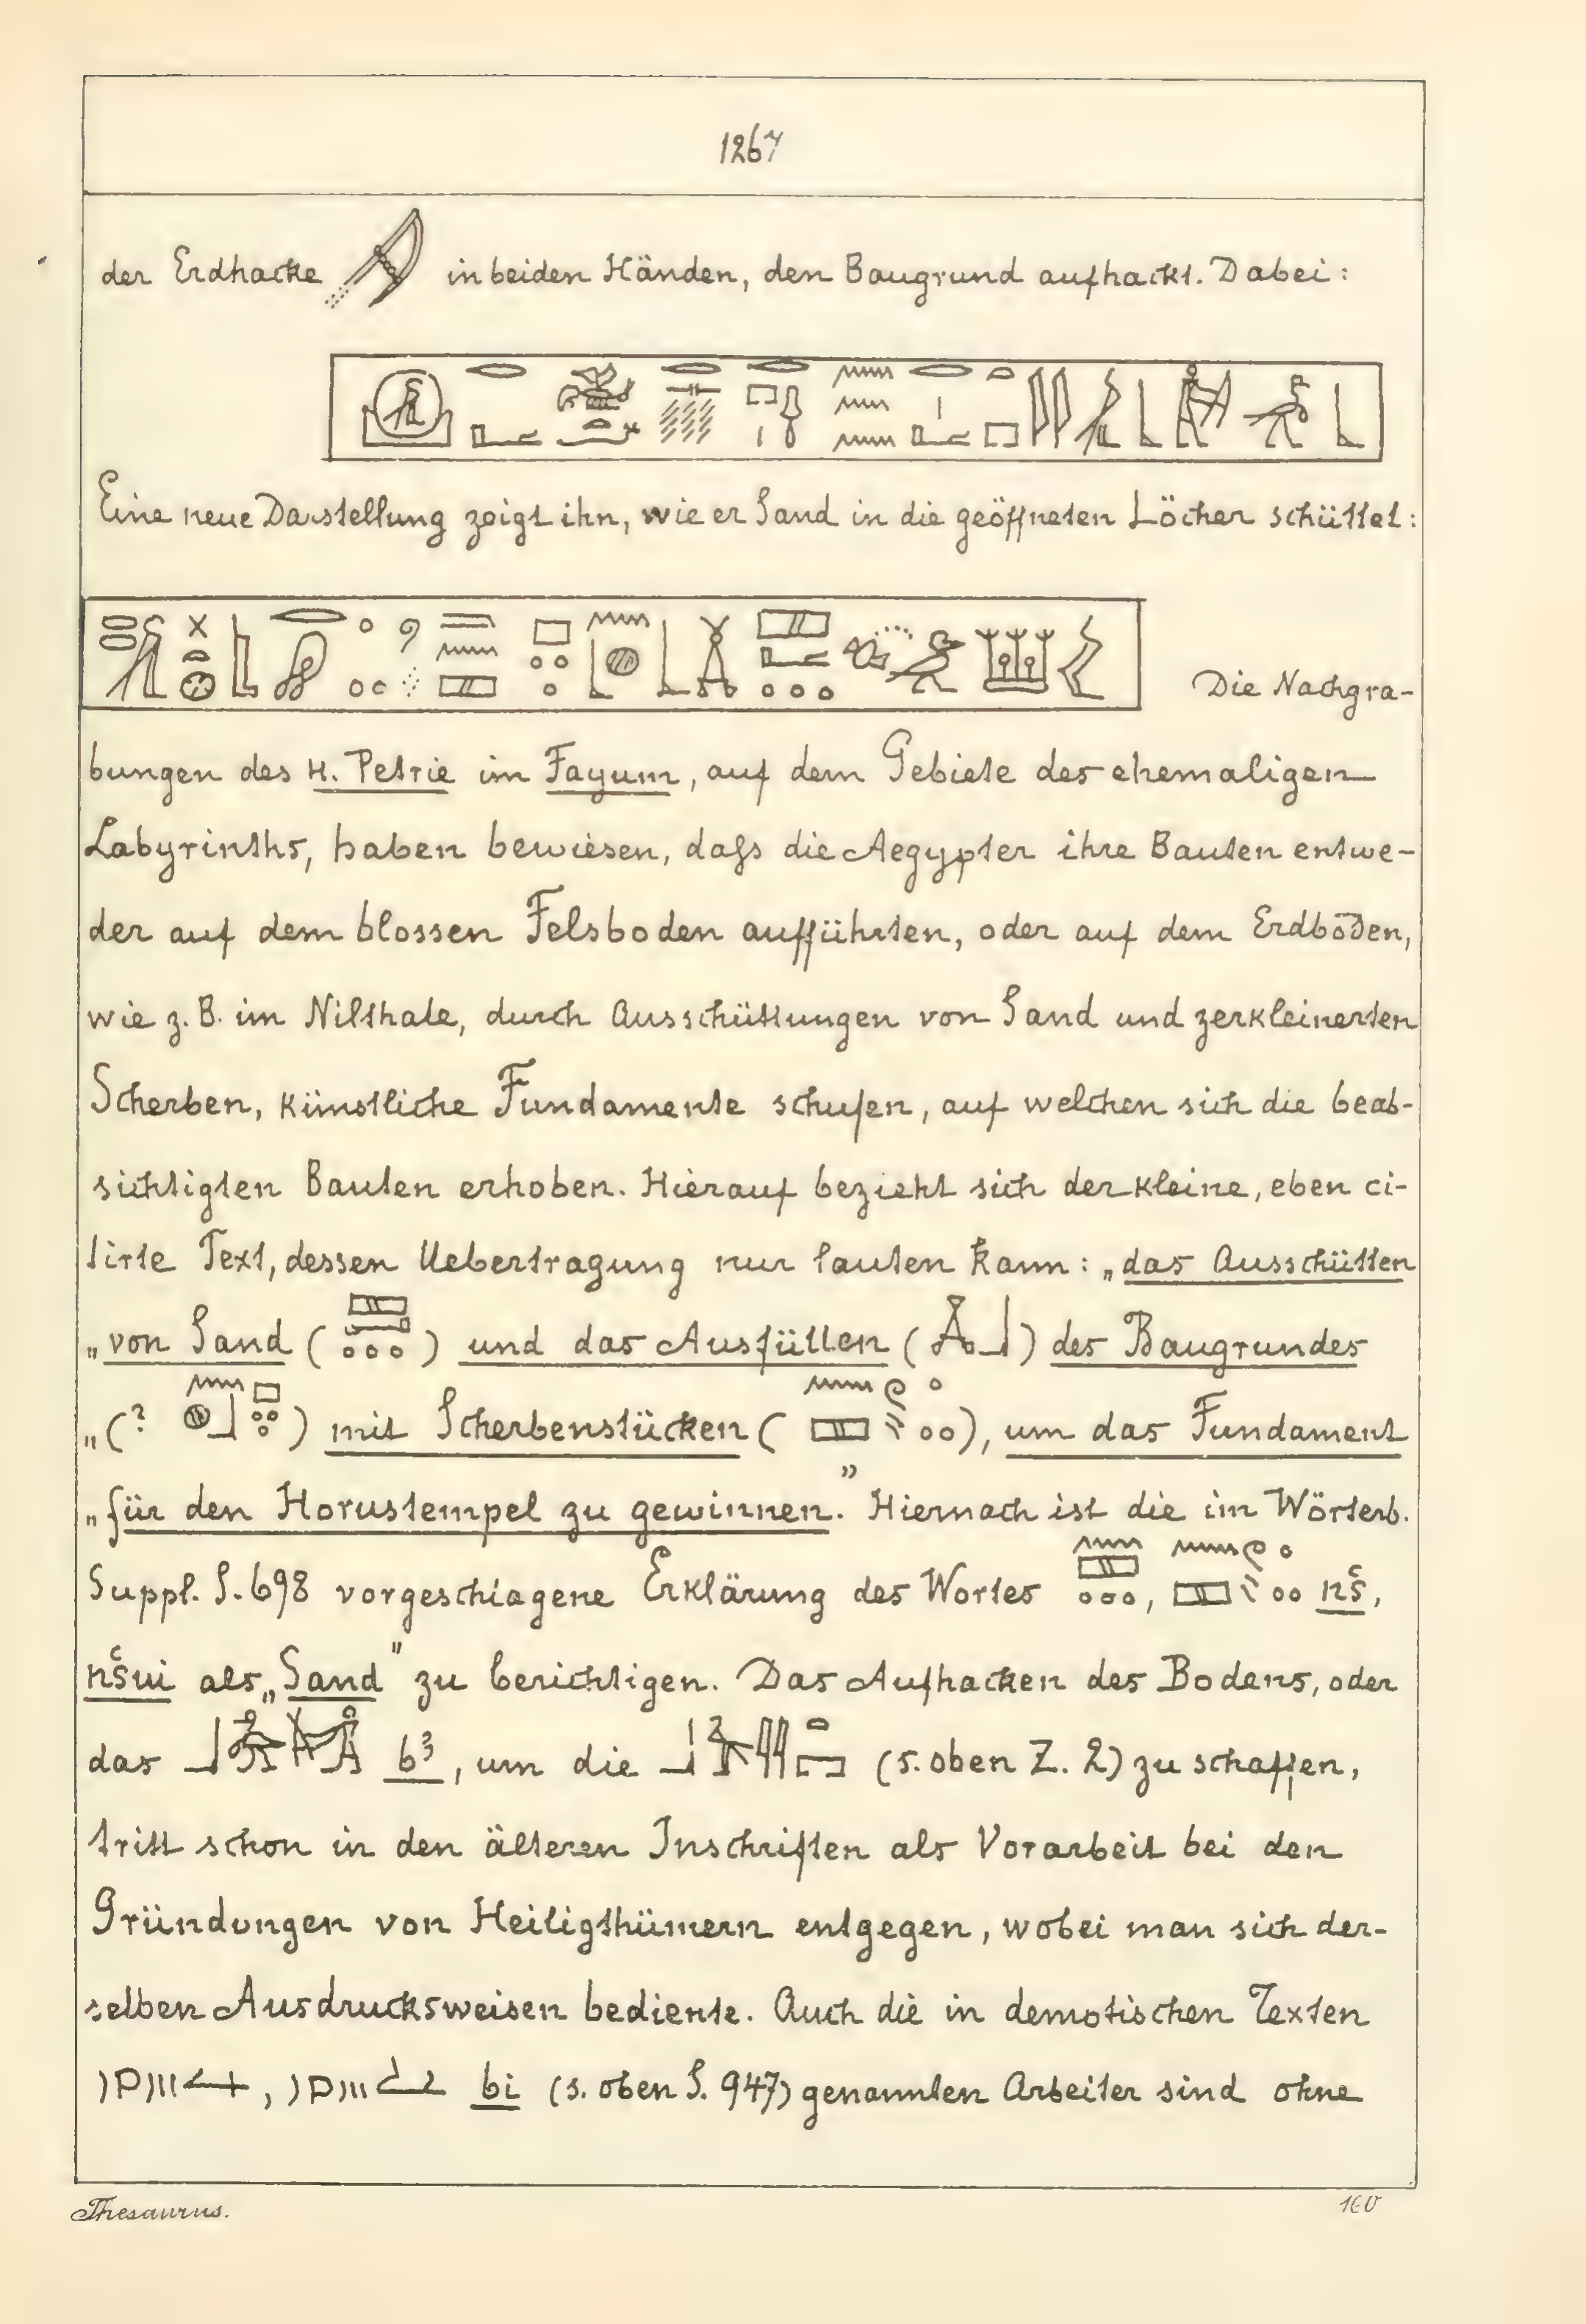 1267
der Erdhacke in beiden Händen, den Baugrund aufhackt. Dabei:
Eine neue Darstellung zeigt ihn, wie er Sand in die geöffneten Löcher schüttet:
Die Nachgra-
bungen des H. Petrie im Fayum, auf dem Gebiete des ehemaligen
Labyrinths, haben bewiesen, daſs die Aegypter ihre Bauten entwe-
der auf dem blossen Felsboden aufführten, oder auf dem Erdboden,
wie z. B. im Nilthale, durch Ausschüttungen von Sand und zerkleinerten
Scherben, künstliche Fundamente schufen, auf welchen sich die beab-
sichtigten Bauten erhoben. Hierauf bezieht sich der kleine, eben ci-
tirte Text, dessen Uebertragung nur lauten kann: „das Ausschütten
„von Sand ( ) und das Ausfüllen ( ) des Baugrundes
„(? ) mit Scherbenstücken ( ), um das Fundament
„für den Horustempel zu gewinnen.” Hiernach ist die im Wörterb.
Suppl. S. 698 vorgeschlagene Erklärung des Wortes , nš,
nšui als „Sand” zu berichtigen. Das Aufhacken des Bodens, oder
das b3, um die (s. oben Z. 2) zu schaffen,
tritt schon in den älteren Inschriften als Vorarbeit bei den
Gründungen von Heiligthümern entgegen, wobei man sich der-
selben Ausdrucksweisen bediente. Auch die in demotischen Texten
, bi (s. oben S. 947) genannten Arbeiter sind ohne
Thesaurus.
160